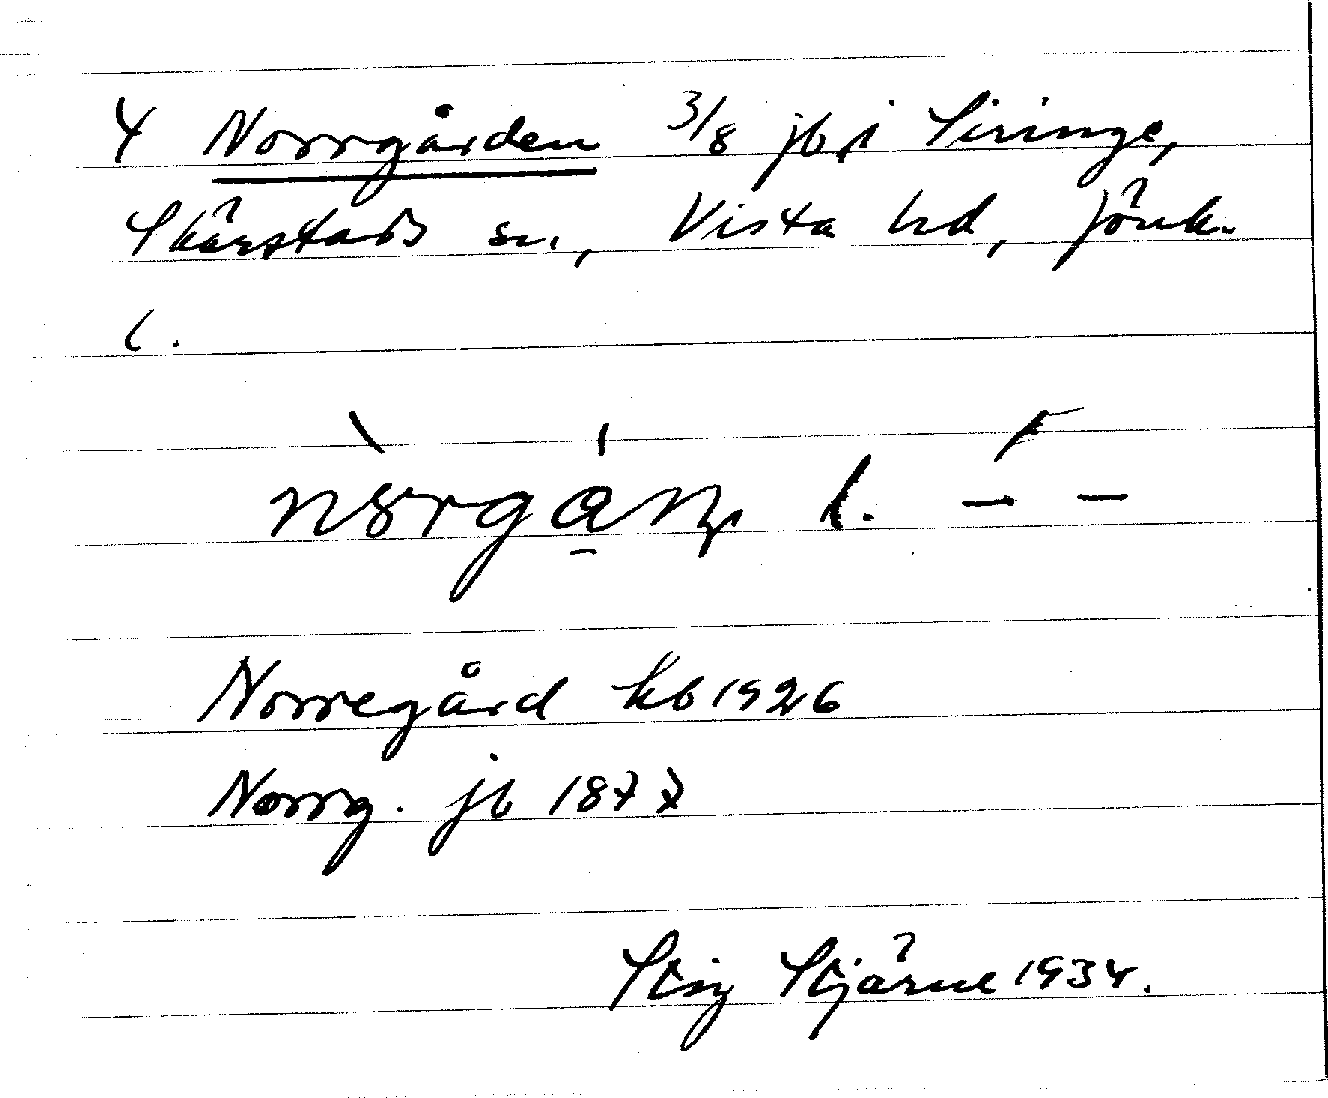 4 Norrgården 3/8 jb i Siringe,
Skärstads sn, Vista hd, Jönk.
l.
nòrgán l. – –
Norregård kb 1926
Norrg. jb 1877
Stig Stjärne 1934.